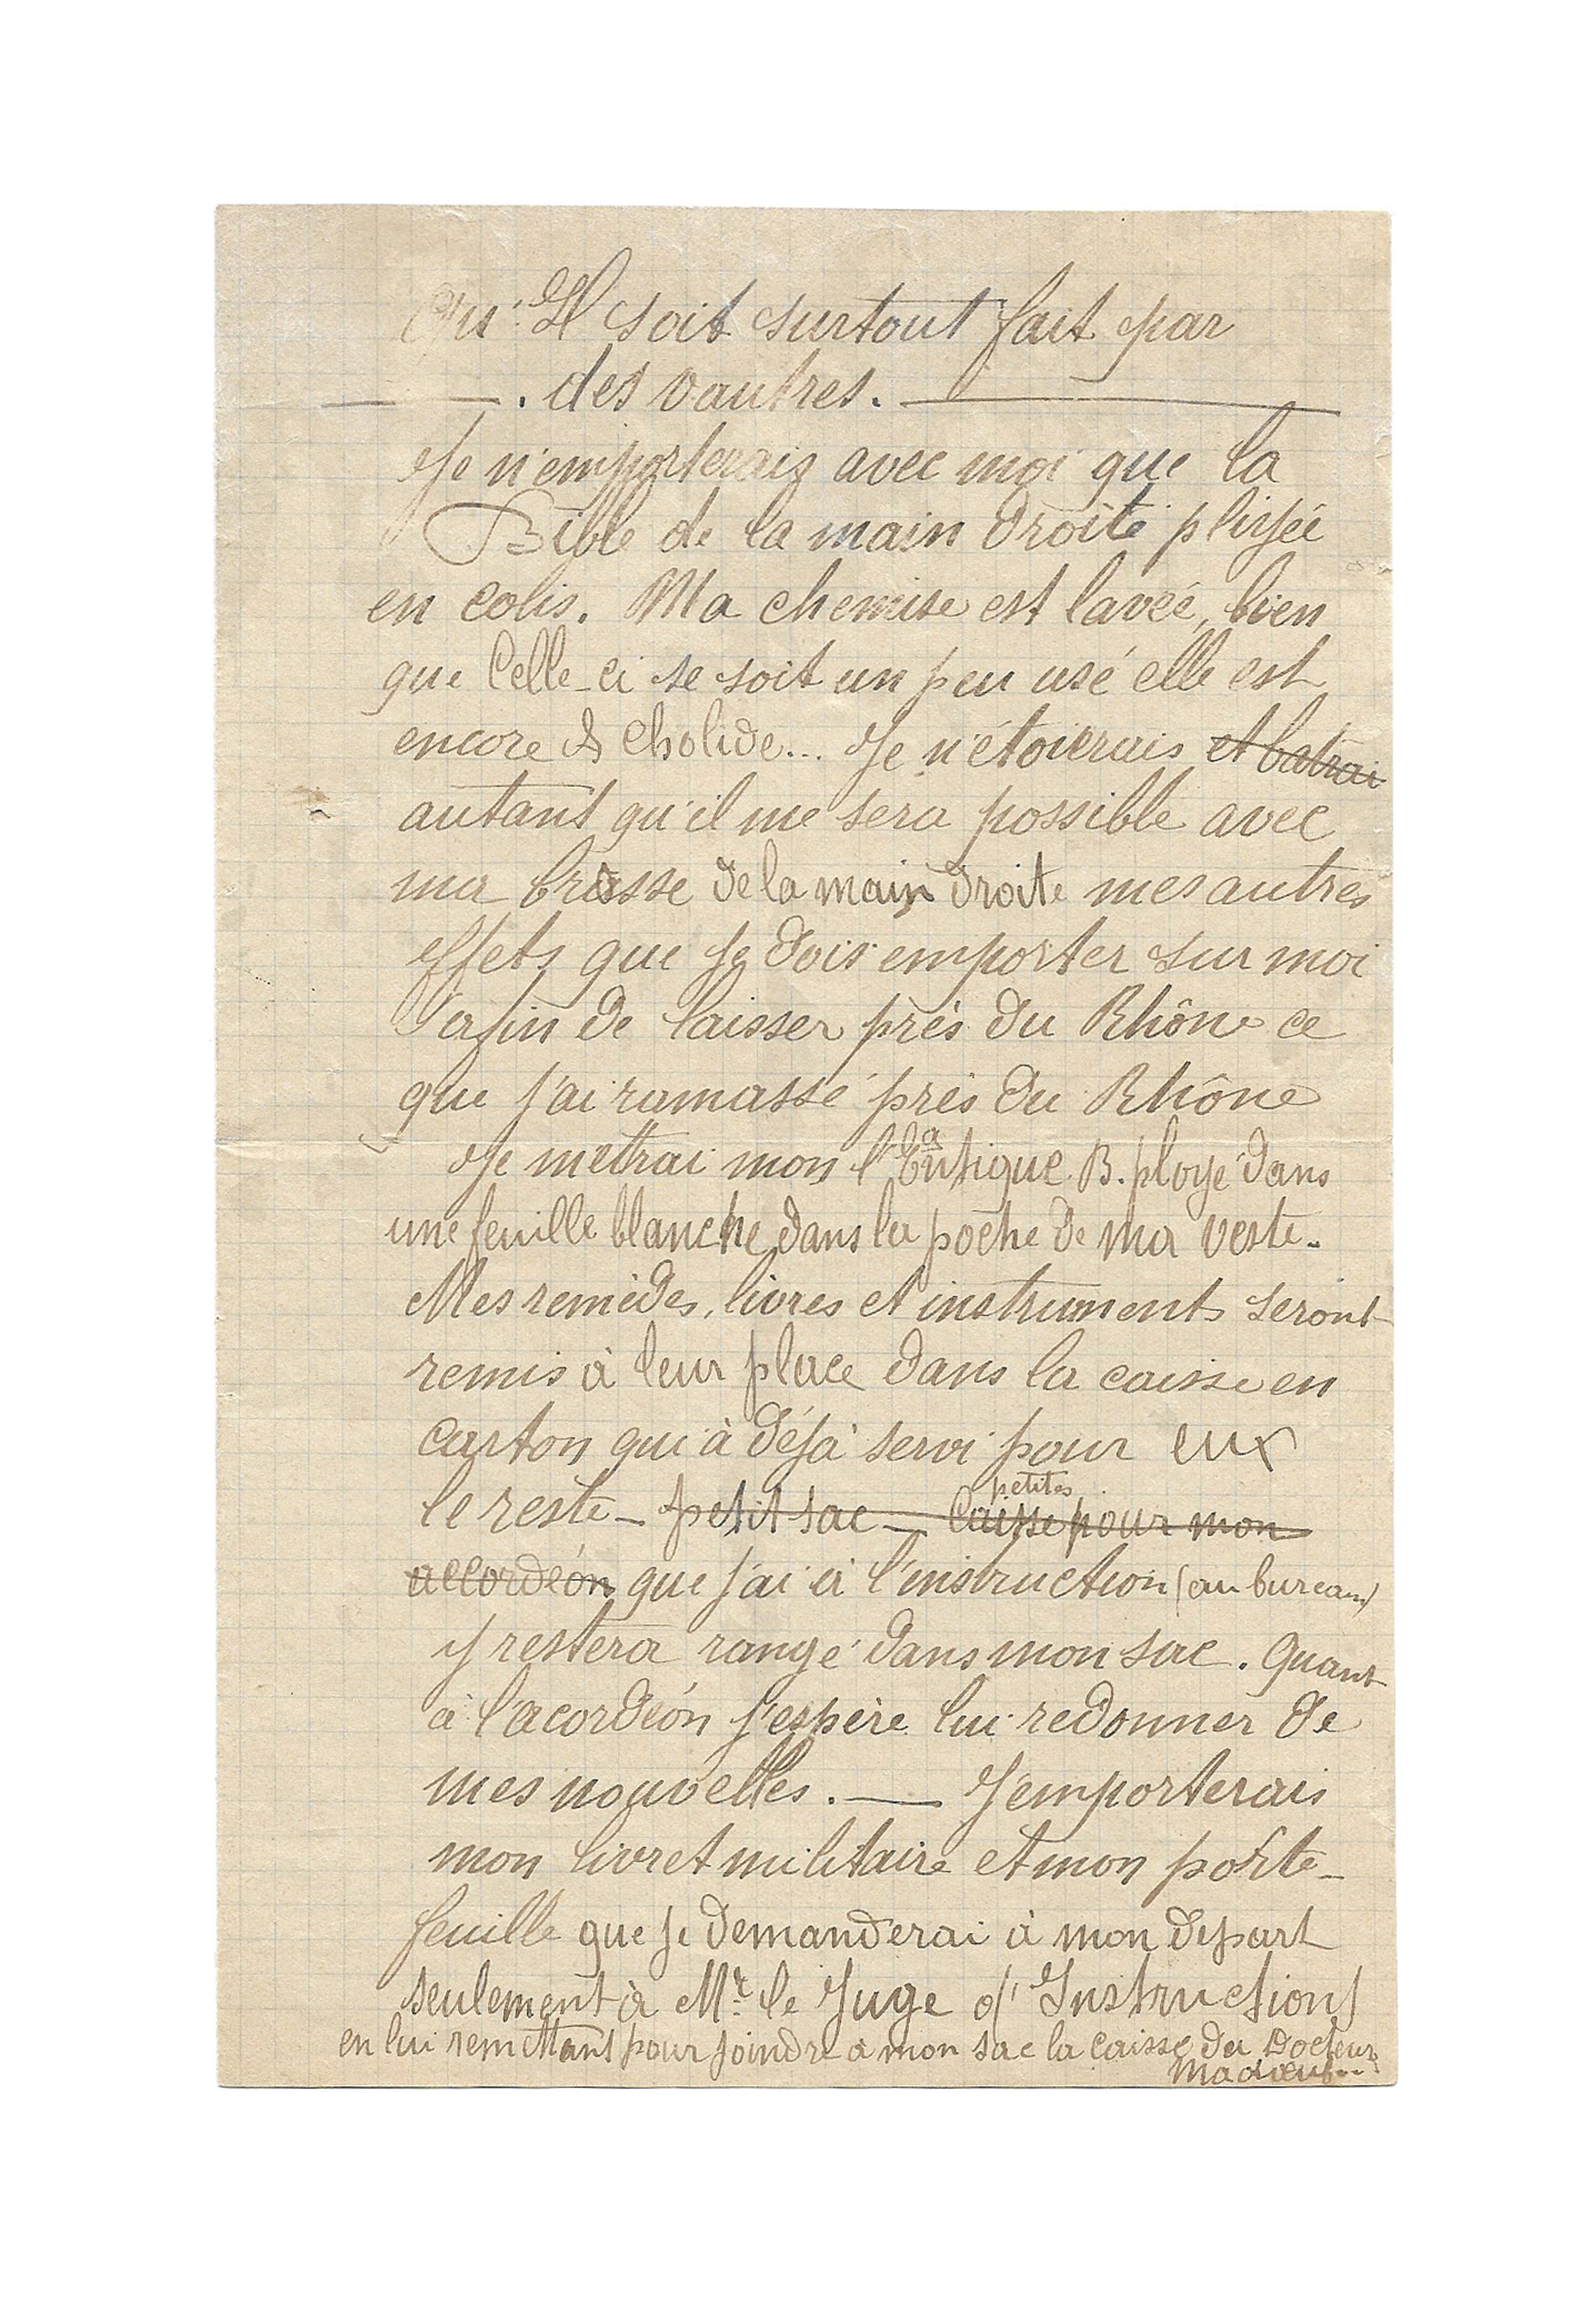 Qu'Il soit surtout fait par
— — . des vautres. —
Je n'emporterais avec moi que la
Bible de la main droite pliyée
en colis. Ma chemise est lavée, bien
que Celle-ci se soit un peu usé elle est
encore cholide... Je n'étoierais et batrai
autant qu'il me sera possible avec
ma brosse de la main droite mes autres
effets que je dois emporter sur moi
afin de laisser près du Rhône ce
que j'ai ramassé près du Rhône
Je mettrai mon B. ployé dans
une feuille blanche dans la poche de ma veste.
Mes remèdes, livres et instruments seront
remis à leur place dans la caisse en
carton qui à déjà servi pour eux
petites
le reste - petit sac - Caisse pour mon
accordéon que j'ai à l'instruction (au bureau)
y restera rangé dans mon sac. Quant
à l'acordéon j'espère lui redonner de
mes nouvelles. — J'emporterais
mon livret militaire et mon porte-
feuille que je demanderai à mon départ
seulement à Mr. le Juge d'Instruction
en lui remettant pour joindre à mon sac la caisse du Docteur
Madoeuf...